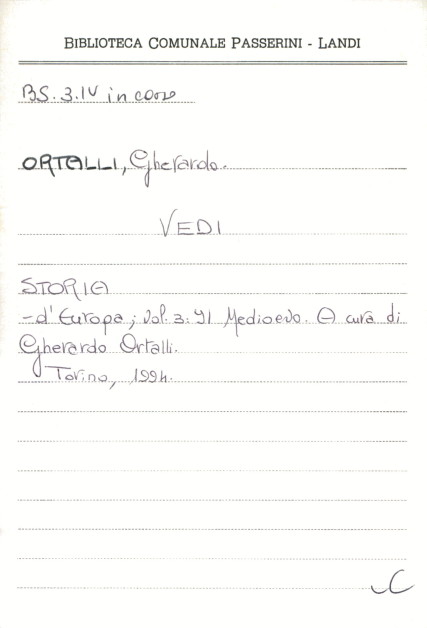 BIBLIOTECA COMUNALE PASSERINI - LANDI
BS. 3. IV in corso
ORTALLI, Gherardo.
VEDI
STORIA
- d'Europa; vol. 3: Il Medioevo. A cura di
Gherardo Ortalli.
Torino, 1994.